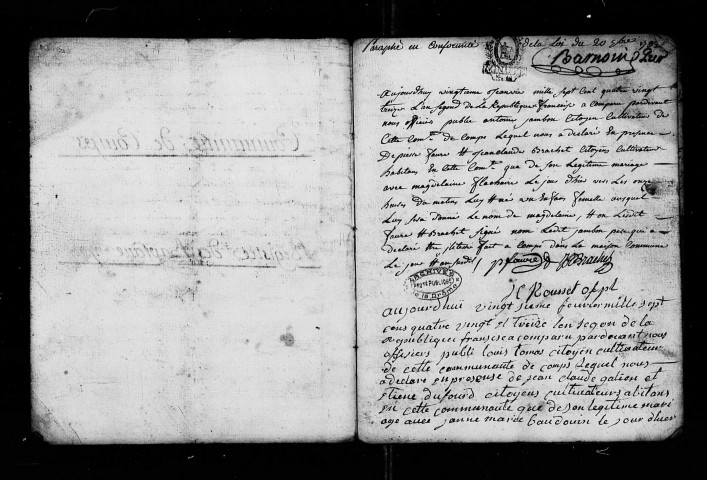 Paraphé en Conformité de la Loi du 20 7bre 1792
Communauté de Comps
Registre de
aujourdhuy vingtieme Janvier mille sept Cent quatre vingt
treize L'an segond de La Republique francoise a comparu pardevant
nous officier public antoine jambon Citoyen Cultivateur de
Cette Comté de Comps Lequel nous a declaré en presence
De pierre faure et Jean claude Brachet Citoyens Cultivateurs
habitans En Cette Comté que de son Legitime mariage
avec magdelaine flachaire Le jour d'hier vers Les onze
heures du matin Luy est né un Enfant femelle auquel
Luy a donné Le nom de magdelaine, et on Ledit
faure et Brachet signé non Ledit jambon pour qui a
declaré être illiteré fait a Comps dans La maison Commune
Le jour et an sudit
P faure J C Brachet
Rousset off pl
ARCHIVES
PUBLIQUES
la Drôme
aujourdhui vingt sieme fevrier mille sept
cens quatre vingt et treize lan segon de la
Republique francaise a comparu pardevant nous
offisiers publi louis tomas citoyen cultivateur
de cette communaute de comps lequel nous
a declare en presense de jean claude galion et
etiene dufourd citoyens cultivateurs abitans
en cette communauté que de son legitime mari
age avec janne marie baudouin le jour dhier